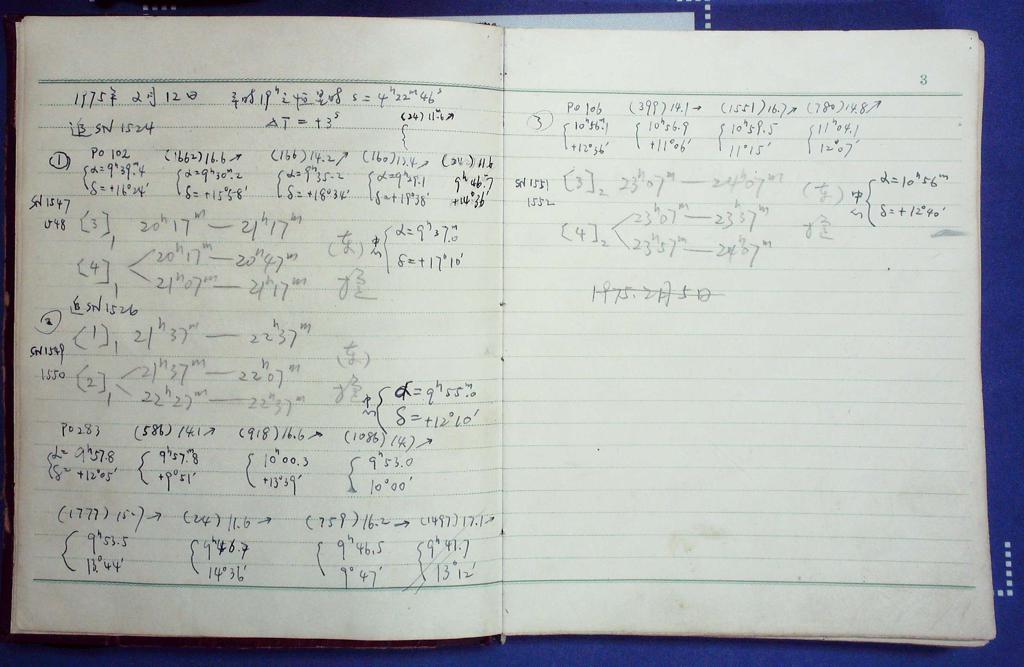 1975年 2月12日
S = 4h22m46s
追 SN 1524
ΔT = +3s
(24) 11.6 ↗
①
PO 102 (1662) 16.6 ↗ (166) 14.2 ↗ (160) 13.4 ↗ (24) 11.6
α=9h39m.4 α=9h30m.2 α=9h35.2 α=9h29.1 9h46.7
δ=+16°24′ δ=+15°58′ δ=+18°34′ δ=+19°38′ +14°36′
SN 1547
1548
[3]1 20h17m — 21h17m
[4]1 20h17m — 20h47m
21h07m — 21h17m
(东)
中心 α=9h37m.0
δ=+17°10′
追 SN 1526
②
SN 1549
1550
[1]1 21h37m — 22h37m
[2]1 21h37m — 22h07m
22h27m — 22h37m
(东)
中心 α=9h55m.0
δ=+12°10′
PO 283 (586) 14.1 ↗ (918) 16.6 ↗ (1086) 14.) ↗
α=9h57.8 9h57m.8 10h00.3 9h53.0
δ=+12°05′ +9°51′ +13°39′ 10°00′
(1777) 15.7 → (24) 11.6 → (759) 16.2 → (1497) 17.1 →
9h53.5 9h46.7 9h46.5 9h41.7
13°44′ 14°36′ 9°47′ 13°12′
3
③
PO 106 (399) 14.1 → (1551) 16.7 ↗ (780) 14.8 ↗
10h56m.1 10h56.9 10h59.5 11h04.1
+12°36′ +11°06′ 11°15′ 12°07′
SN 1551
1552
[3]2 23h07m — 24h07m
[4]2 23h07m — 23h37m
23h57m — 24h07m
(东)
中心 α=10h56m
δ=+12°40′
1975.2月5日